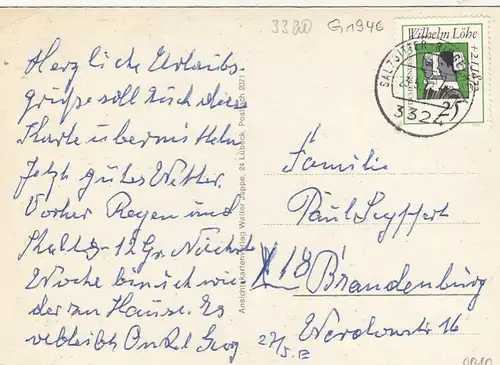 3380 G1946
Wilhelm Löhe
25
3324
Herzliche Urlaubs-
grüße soll Euch diese
Karte übermitteln
Jetzt gutes Wetter.
Vorher Regen und
Kalt 8-12 Gr. Nächste
Woche bin ich wie
der zu Hause. Es
verbleibt Onkel Georg
Ansichtskartenverlag Walter Jappe, 24 Lübeck, Postfach 2071
Familie
Paul Seyffert
X 18
Brandenburg
Werderstr 16
27/5.